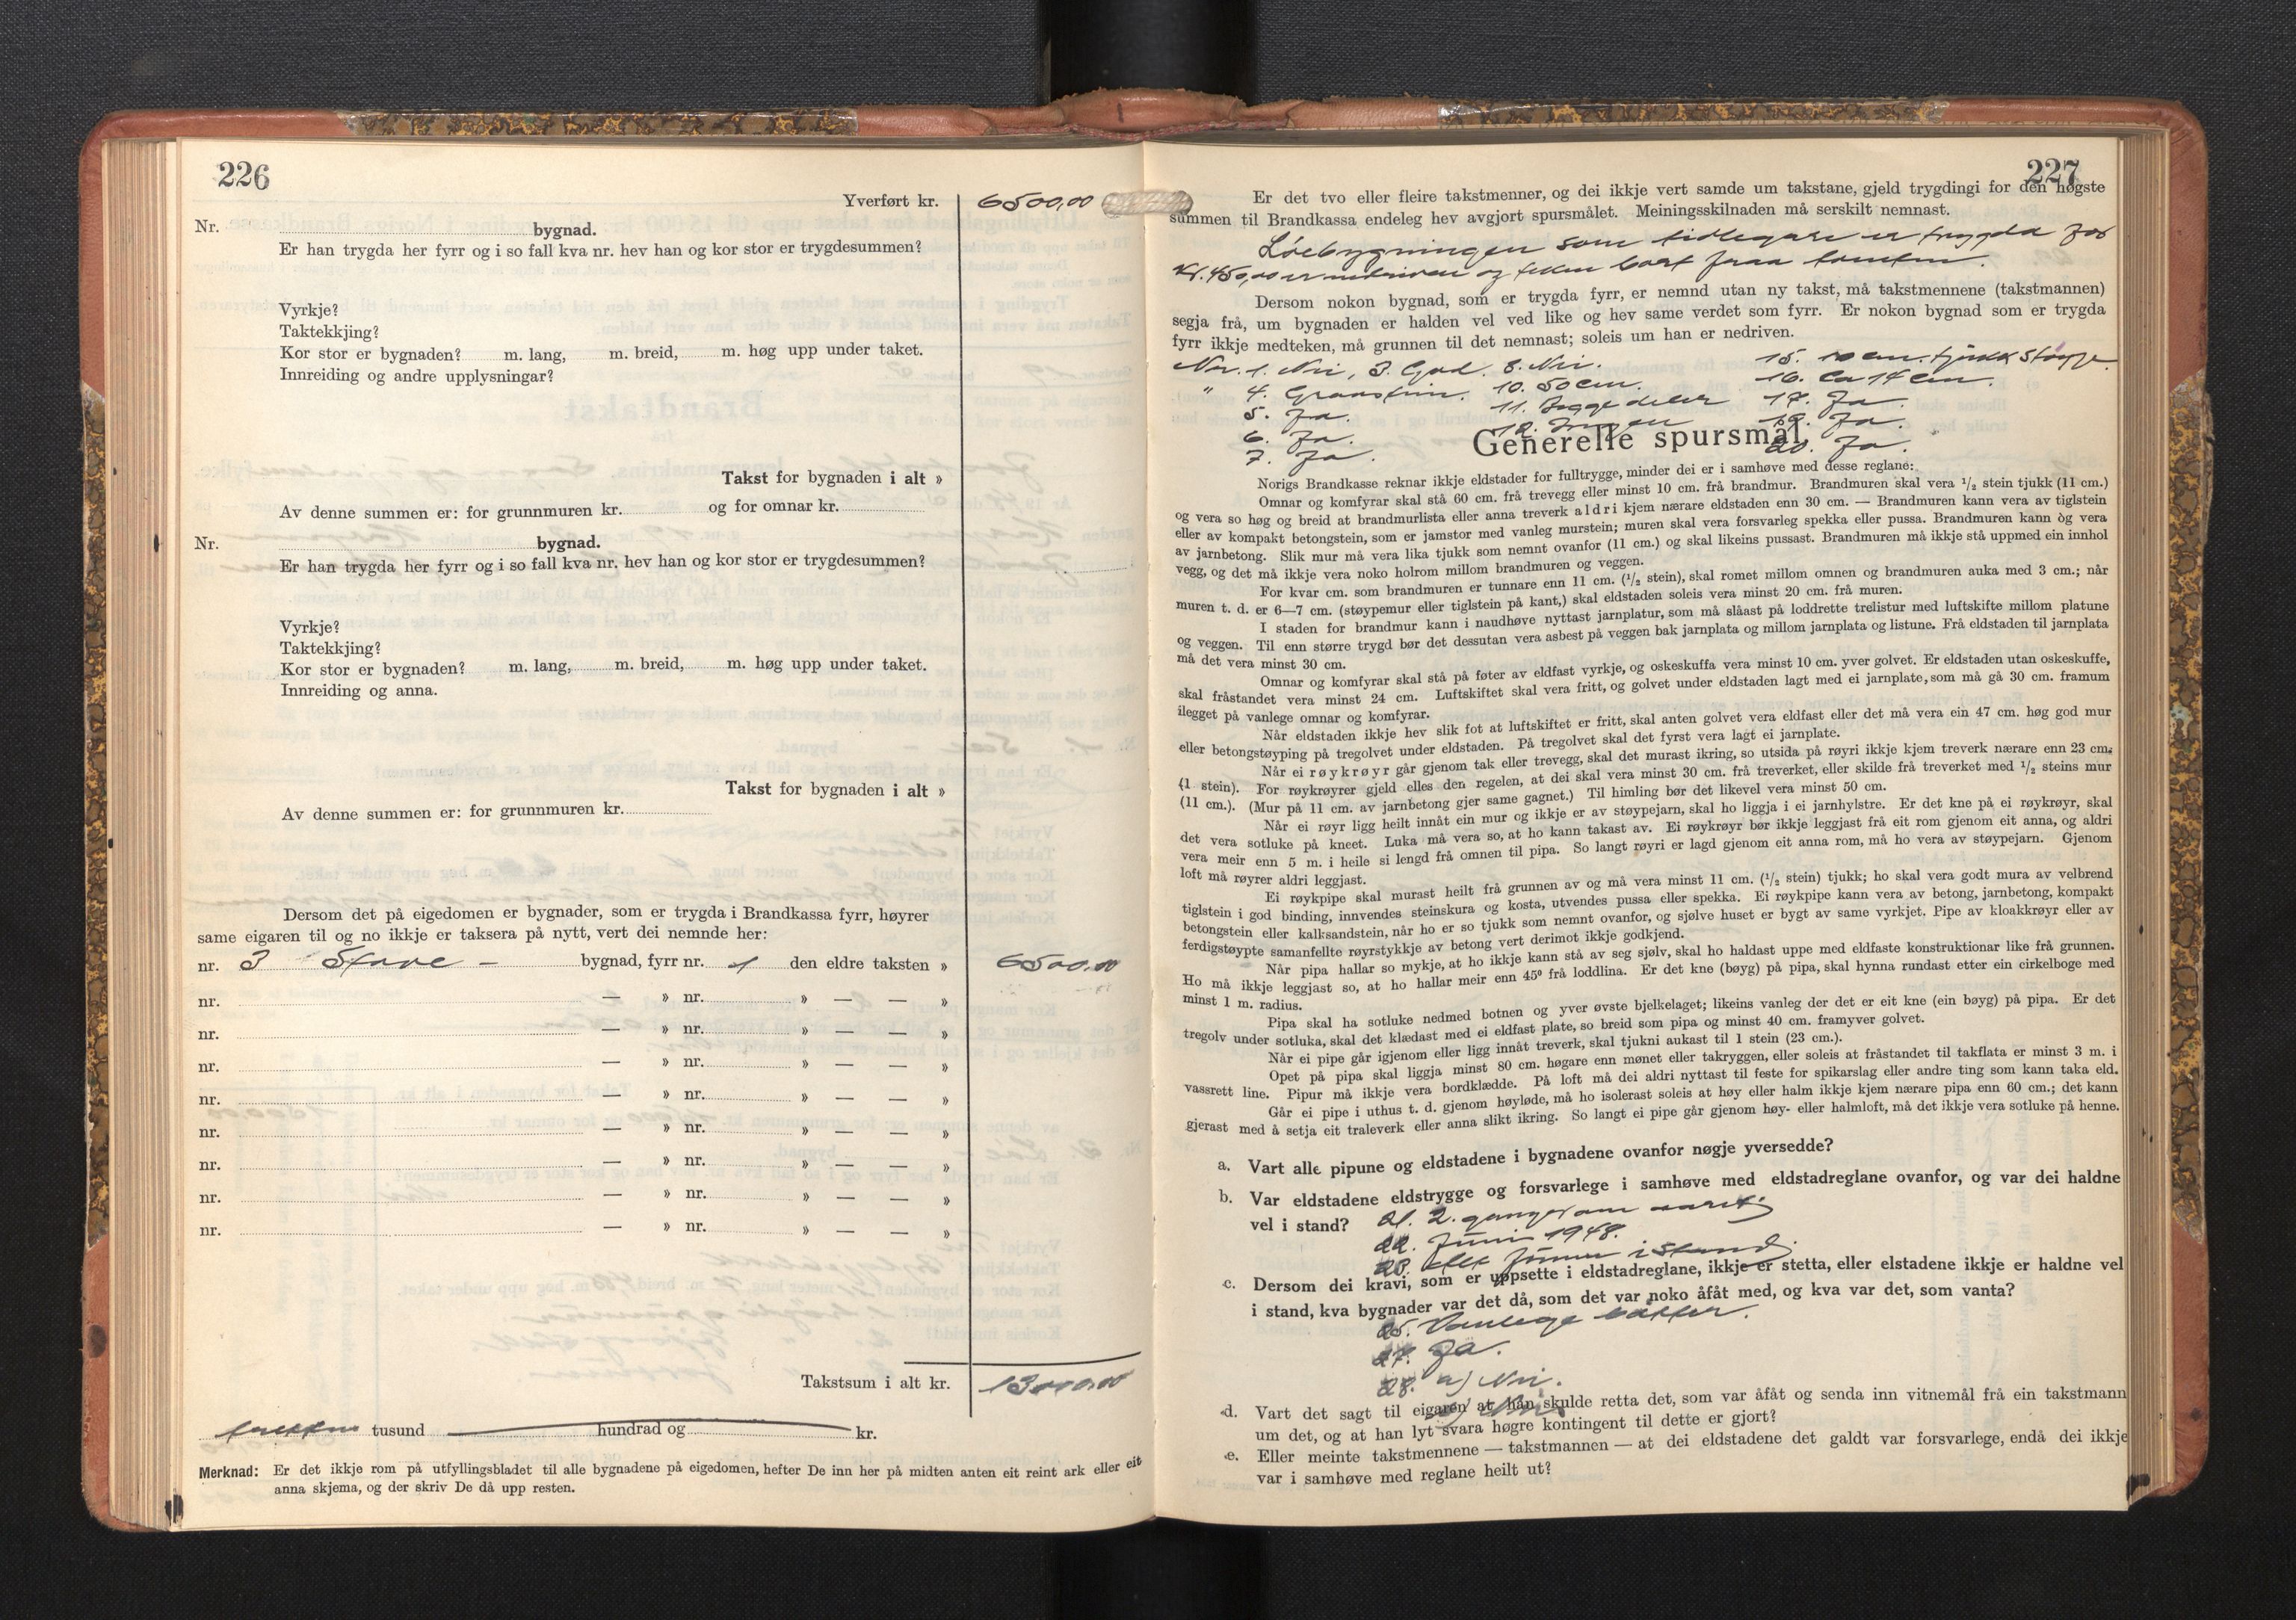 226
Yverført kr. 6500,00
Nr. bygnad.
Er han trygda her fyrr og i so fall kva nr. hev han og kor stor er trygdesummen?
Vyrkje?
Taktekkjing?
Kor stor er bygnaden? m. lang, m. breid, m. høg upp under taket.
Innreiding og andre upplysningar?
Takst for bygnaden i alt »
Av denne summen er: for grunnmuren kr. og for omnar kr.
Nr. bygnad.
Er han trygda her fyrr og i so fall kva nr. hev han og kor stor er trygdesummen?
Vyrkje?
Taktekkjing?
Kor stor er bygnaden? m. lang, m. breid, m. høg upp under taket.
Innreiding og anna.
Takst for bygnaden i alt »
Av denne summen er: for grunnmuren kr.
Dersom det på eigedomen er bygnader, som er trygda i Brandkassa fyrr, høyrer
same eigaren til og no ikkje er taksera på nytt, vert dei nemnde her:
nr. 3 Stove – bygnad, fyrr nr. 1 den eldre taksten » 6500,00
nr. — » nr. » — — »
nr. — » nr. » — — »
nr. — » nr. » — — »
nr. — » nr. » — — »
nr. — » nr. » — — »
nr. — » nr. » — — »
nr. — » nr. » — — »
nr. — » nr. » — — »
Takstsum i alt kr. 13000,00
tretten tusund — hundrad og — kr.
Merknad: Er det ikkje rom på utfyllingsbladet til alle bygnadene på eigedomen, hefter De inn her på midten anten eit reint ark eller eit
anna skjema, og der skriv De då upp resten.
227
Er det tvo eller fleire takstmenner, og dei ikkje vert samde um takstane, gjeld trygdingi for den høgste
summen til Brandkassa endeleg hev avgjort spursmålet. Meiningsskilnaden må serskilt nemnast.
Løebygningen som tidlegare er trygda for
Kr. 450,00 er nedriven og teken bort fraa tomten.
Dersom nokon bygnad, som er trygda fyrr, er nemnd utan ny takst, må takstmennene (takstmannen)
segja frå, um bygnaden er halden vel ved like og hev same verdet som fyrr. Er nokon bygnad som er trygda
fyrr ikkje medteken, må grunnen til det nemnast; soleis um han er nedriven.
Nr. 1. Nei, 3. God. 8. Nei. 15. 10 cm. tjukk støype.
" 4. Graastein. 10. 50 cm. 16. Ca 14 cm.
5. Ja. 11. Begge deler 17. Ja.
6. Ja. 12. Ingen 19. Ja.
7. Ja. 20. Ja.
Generelle spursmål.
Norigs Brandkasse reknar ikkje eldstader for fulltrygge, minder dei er i samhøve med desse reglane:
Omnar og komfyrar skal stå 60 cm. frå trevegg eller minst 10 cm. frå brandmur. Brandmuren skal vera 1/2 stein tjukk (11 cm.)
og vera so høg og breid at brandmurlista eller anna treverk aldri kjem nærare eldstaden enn 30 cm. — Brandmuren kann vera av tiglstein
eller av kompakt betongstein, som er jamstor med vanleg murstein; muren skal vera forsvarleg spekka eller pussa. Brandmuren kann òg vera
av jarnbetong. Slik mur må vera lika tjukk som nemnt ovanfor (11 cm.) og skal likeins pussast. Brandmuren må ikkje stå uppmed ein innhol
vegg, og det må ikkje vera noko holrom millom brandmuren og veggen.
For kvar cm. som brandmuren er tunnare enn 11 cm. (1/2 stein), skal romet millom omnen og brandmuren auka med 3 cm.; når
muren t. d. er 6—7 cm. (støypemur eller tiglstein på kant,) skal eldstaden soleis vera minst 20 cm. frå muren.
I staden for brandmur kann i naudhøve nyttast jarnplatur, som må slåast på loddrette trelistur med luftskifte millom platune
og veggen. Til enn større trygd bør det dessutan vera asbest på veggen bak jarnplata og millom jarnplata og listune. Frå eldstaden til jarnplata
må det vera minst 30 cm.
Omnar og komfyrar skal stå på føter av eldfast vyrkje, og oskeskuffa vera minst 10 cm. yver golvet. Er eldstaden utan oskeskuffe,
skal fråstandet vera minst 24 cm. Luftskiftet skal vera fritt, og golvet under eldstaden lagt med ei jarnplate, som må gå 30 cm. framum
ilegget på vanlege omnar og komfyrar.
Når eldstaden ikkje hev slik fot at luftskiftet er fritt, skal anten golvet vera eldfast eller det må vera ein 47 cm. høg god mur
eller betongstøyping på tregolvet under eldstaden. På tregolvet skal det fyrst vera lagt ei jarnplate.
Når ei røykrøyr går gjenom tak eller trevegg, skal det murast ikring, so utsida på røyri ikkje kjem treverk nærare enn 23 cm.
(1 stein). For røykrøyrer gjeld elles den regelen, at dei skal vera minst 30 cm. frå treverket, eller skilde frå treverket med 1/2 steins mur
(11 cm.). (Mur på 11 cm. av jarnbetong gjer same gagnet.) Til himling bør det likevel vera minst 50 cm.
Når ei røyr ligg heilt innåt ein mur og ikkje er av støypejarn, skal ho liggja i ei jarnhylstre. Er det kne på ei røykrøyr, skal
det vera sotluke på kneet. Luka må vera so, at ho kann takast av. Ei røykrøyr bør ikkje leggjast frå eit rom gjenom eit anna, og aldri
vera meir enn 5 m. i heile si lengd frå omnen til pipa. So langt røyri er lagd gjenom eit anna rom, må ho vera av støypejarn. Gjenom
loft må røyrer aldri leggjast.
Ei røykpipe skal murast heilt frå grunnen av og må vera minst 11 cm. (1/2 stein) tjukk; ho skal vera godt mura av velbrend
tiglstein i god binding, innvendes steinskura og kosta, utvendes pussa eller spekka. Ei røykpipe kann vera av betong, jarnbetong, kompakt
betongstein eller kalksandstein, når ho er so tjukk som nemnt ovanfor, og sjølve huset er bygt av same vyrkjet. Pipe av kloakkrøyr eller av
ferdigstøypte samanfellte røyrstykkje av betong vert derimot ikkje godkjend.
Når pipa hallar so mykje, at ho ikkje kann stå av seg sjølv, skal ho haldast uppe med eldfaste konstruktionar like frå grunnen.
Ho må ikkje leggjast so, at ho hallar meir enn 45° frå loddlina. Er det kne (bøyg) på pipa, skal hynna rundast etter ein cirkelboge med
minst 1 m. radius.
Pipa skal ha sotluke nedmed botnen og yver øvste bjelkelaget; likeins vanleg der det er eit kne (ein bøyg) på pipa. Er det
tregolv under sotluka, skal det klædast med ei eldfast plate, so breid som pipa og minst 40 cm. framyver golvet.
Når ei pipe går igjenom eller ligg innåt treverk, skal tjukni aukast til 1 stein (23 cm.).
Opet på pipa skal liggja minst 80 cm. høgare enn mønet eller takryggen, eller soleis at fråstandet til takflata er minst 3 m. i
vassrett line. Pipur må ikkje vera bordklædde. På loft må dei aldri nyttast til feste for spikarslag eller andre ting som kann taka eld.
Går ei pipe i uthus t. d. gjenom høyløde, må ho isolerast soleis at høy eller halm ikkje kjem nærare pipa enn 60 cm.; det kann
gjerast med å setja eit traleverk eller anna slikt ikring. So langt ei pipe går gjenom høy- eller halmloft, må det ikkje vera sotluke på henne.
a. Vart alle pipune og eldstadene i bygnadene ovanfor nøgje yversedde?
b. Var eldstadene eldstrygge og forsvarlege i samhøve med eldstadreglane ovanfor, og var dei haldne
vel i stand? 21. 2. ganger om aaret
22. Juni 1948.
23. Alt finnes i stand.
c. Dersom dei kravi, som er uppsette i eldstadreglane, ikkje er stetta, eller elstadene ikkje er haldne vel
i stand, kva bygnader var det då, som det var noko åfåt med, og kva var det, som vanta?
25. Vanlege batter.
27. Ja.
28. a) Nei.
d. Vart det sagt til eigaren at han skulde retta det, som var åfåt og senda inn vitnemål frå ein takstmann
um det, og at han lyt svara høgre kontingent til dette er gjort?
e. Eller meinte takstmennene — takstmannen — at dei eldstadene det galdt var forsvarlege, endå dei ikkje
var i samhøve med reglane heilt ut?